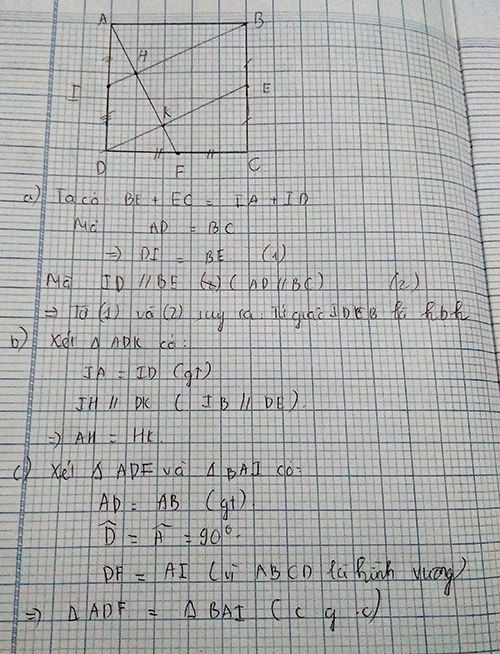 A B
H
I E
K
D F C
a) Ta có: BE + EC = IA + ID
Mà AD = BC
=> DI = BE (1)
Mà ID // BE ( AD // BC) (2)
=> Từ (1) và (2) suy ra: Tứ giác IDEB là hbh
b) Xét Δ ADK có:
IA = ID (gt)
IH // DK ( IB // DE).
=> AH = HK.
c) Xét Δ ADF và Δ BAI có:
AD = AB (gt).
D̂ = Â = 90°.
DF = AI (vì ABCD là hình vuông)
=> Δ ADF = Δ BAI ( c g .c)